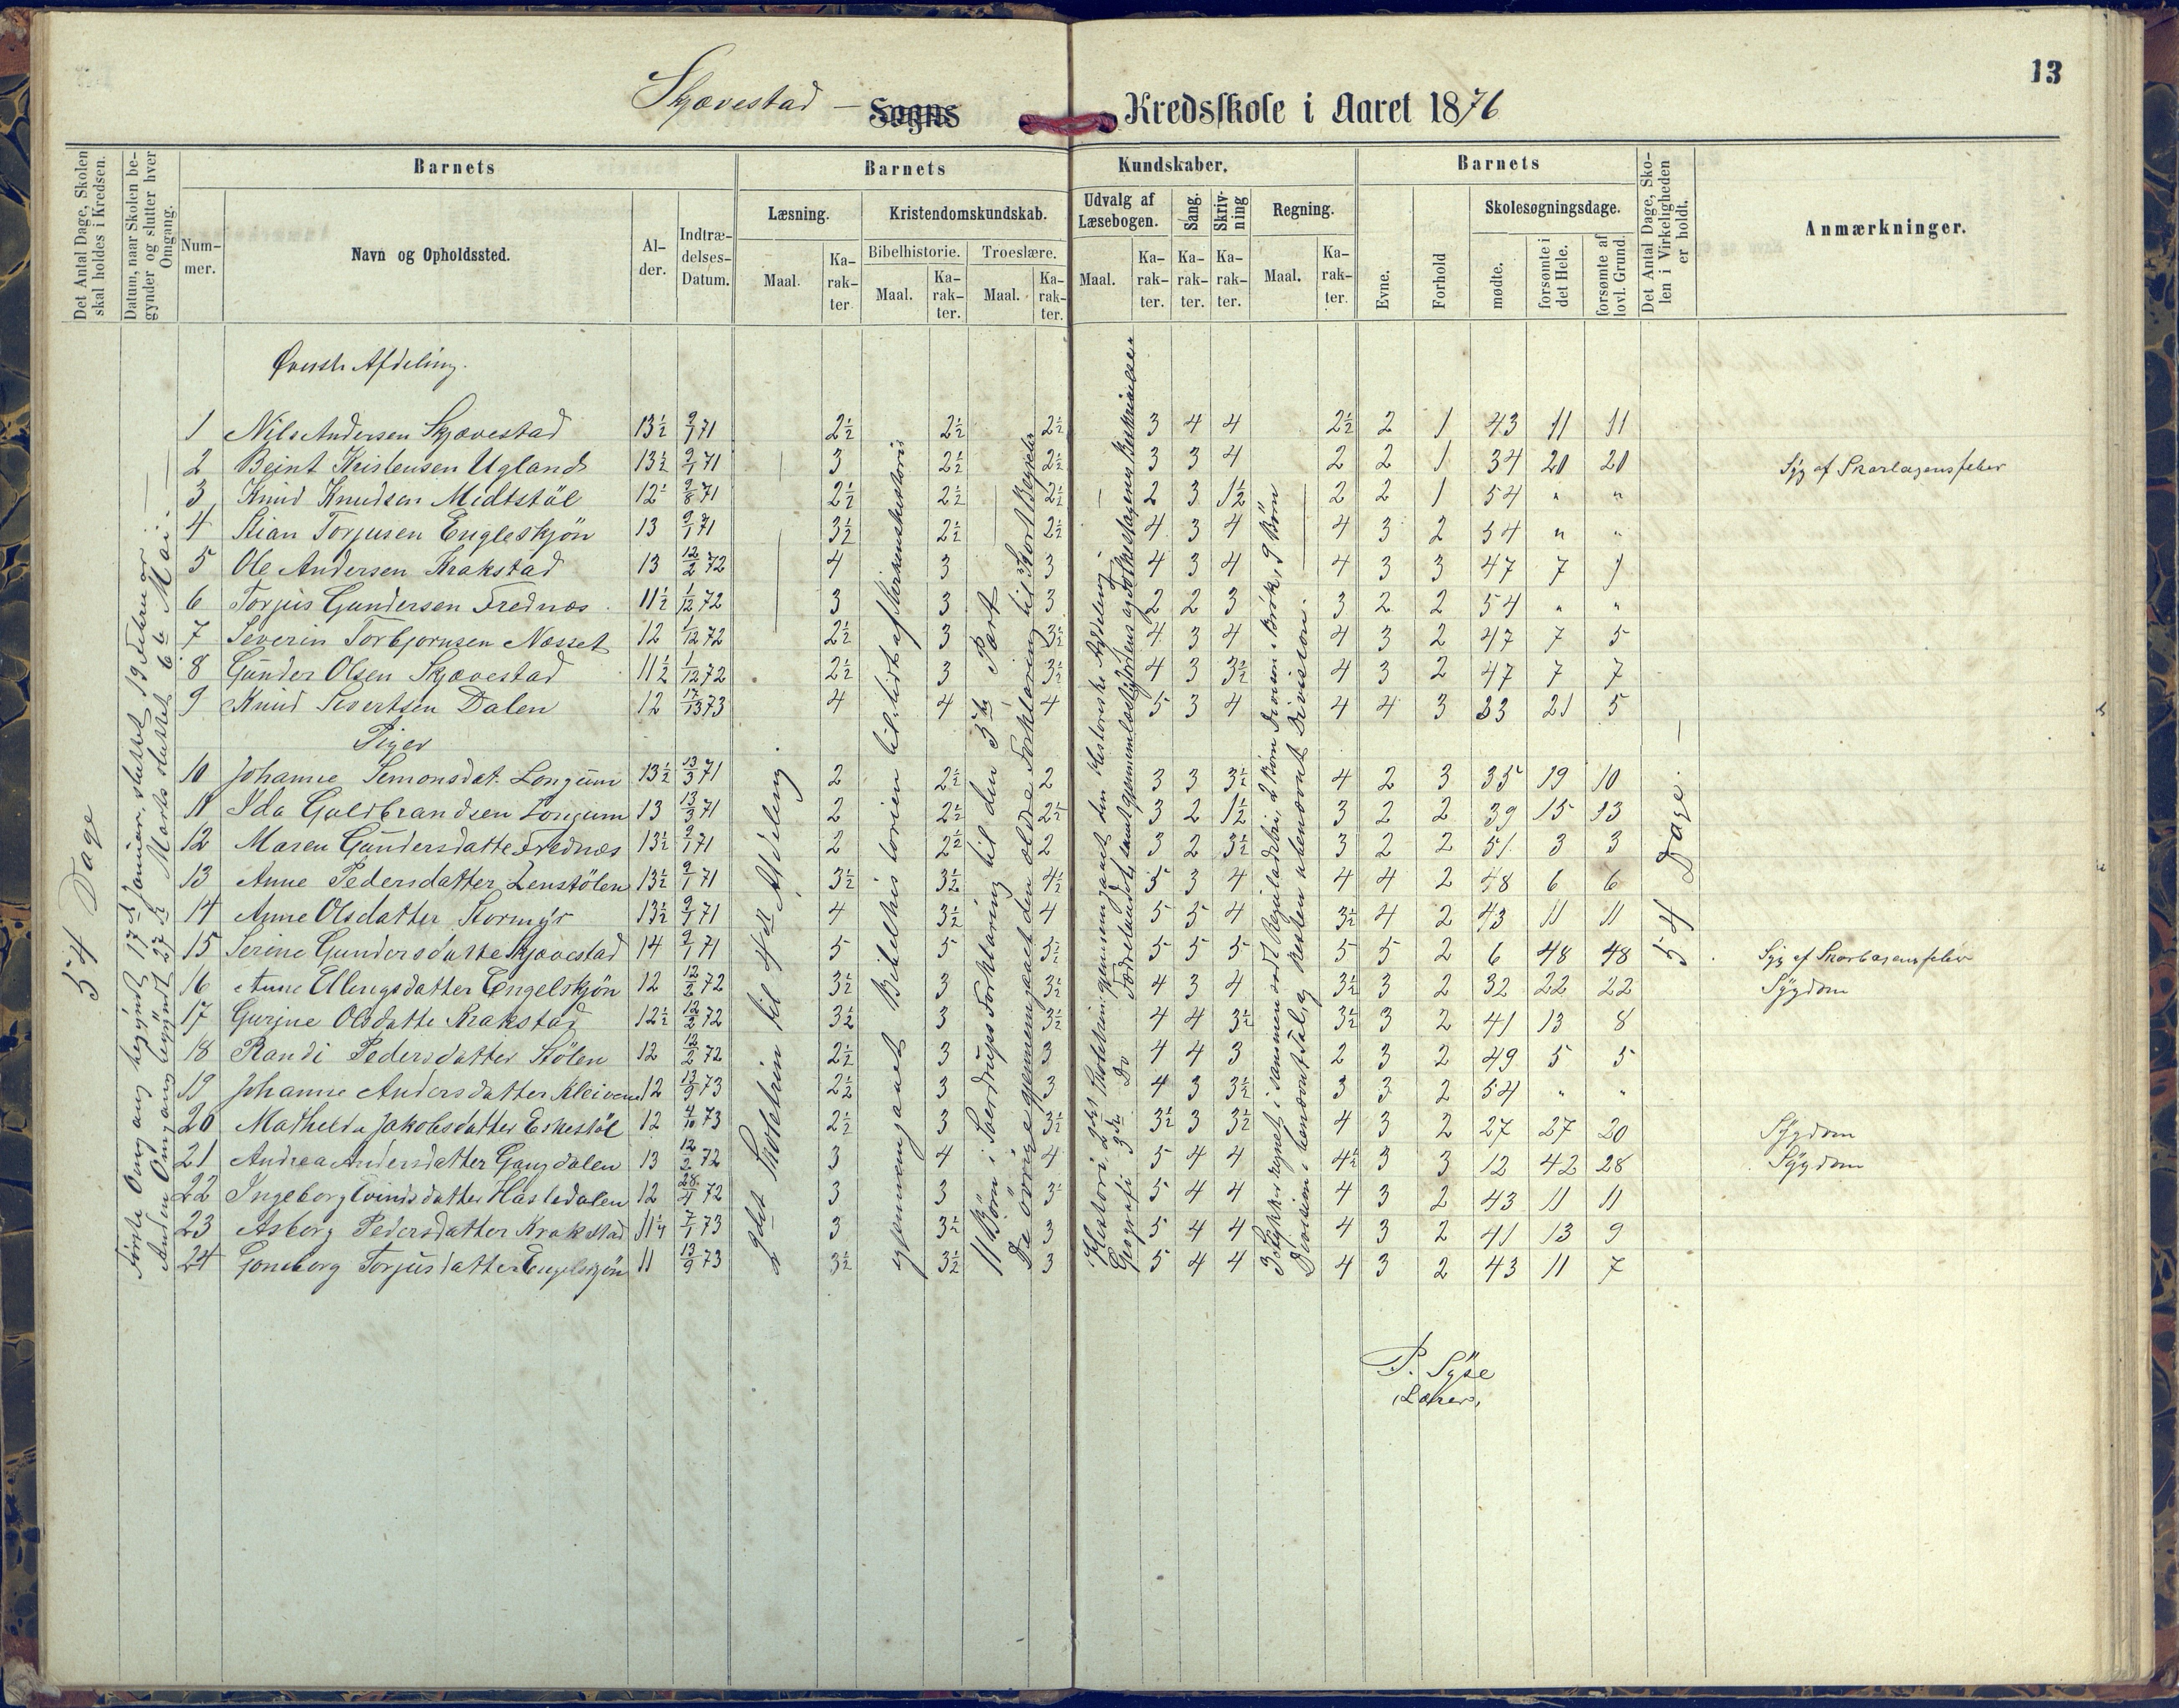 13
Skjævestad – Sogns Kredsskole i Aaret 1876
Det Antal Dage, Skolen skal holdes i Kredsen.
Datum, naar Skolen begynder og slutter hver Omgang.
Barnets
Nummer.
Navn og Opholdssted.
Alder.
Indtrædelses-Datum.
Barnets Kundskaber.
Læsning.
Maal.
Karakter.
Kristendomskundskab.
Bibelhistorie.
Maal.
Karakter.
Troeslære.
Maal.
Karakter.
Udvalg af Læsebogen.
Maal.
Karakter.
Sang.
Karakter.
Skrivning
Karakter.
Regning.
Maal.
Karakter.
Barnets
Evne.
Forhold
Skolesøgningsdage.
mødte.
forsømte i det Hele.
forsømte af lovl. Grund.
Det Antal Dage, Skolen i Virkeligheden er holdt.
Anmærkninger.
54 Dage
Første Omgang begyndt 17de Januar, sluttet 19 Februar
Anden Omgang begyndt 27de Marts sluttet 6te Mai.
Øverste Afdeling.
1 Nils Andersen Skjævestad 13½ 9/1 71 2½ 2½ 2½ 3 4 4 2½ 2 1 43 11 11
2 Beint Kristensen Ugland 13½ 9/1 71 3 2½ 2½ 3 3 4 2 2 1 34 20 20 Syg af Skarlagensfeber
3 Knud Knudsen Midtstöl 12 9/8 71 2½ 2½ 2½ 2 3 1½ 2 2 1 54 " "
4 Stian Torjusen Engleskjön 13 9/1 71 3½ 2½ 2½ 4 3 4 4 3 2 54 " "
5 Ole Andersen Krakstad 13 12/2 72 4 3 3 4 3 4 4 3 3 47 7 7
6 Torjus Gundersen Frednæs 11½ 1/12 72 3 3 3 2 2 3 3 2 2 54 " "
7 Severin Torbjornsen Næsset 12 1/12 72 2½ 3 3½ 4 3 4 4 3 2 47 7 5
8 Gunder Olsen Skjævestad 11½ 1/12 72 2½ 3 3½ 4 3 3½ 4 3 2 47 7 7
9 Knud Sivertsen Dalen 12 73 4 4 4 5 3 4 4 4 3 33 21 5
Piger
10 Johanne Semonsdat. Longum 13½ 13/3 71 2 2½ 2 3 3 3½ 4 2 3 35 19 10
11 Ida Guldbrandsen Longum 13 13/3 71 2 2½ 2½ 3 2 1½ 3 2 2 39 15 13
12 Maren Gundersdatte Frednæs 13½ 9/1 71 2 2½ 2 3 2 3½ 3 2 2 51 3 3
13 Anne Pedersdatter Lenstölen 13½ 9/1 71 3½ 3½ 4½ 5 3 4 4 4 2 48 6 6
14 Anne Olsdatter Stormyr 13½ 9/1 71 4 3½ 4 5 5 4 3½ 4 2 43 11 11
15 Serine Gundersdatte Skjævestad 14 9/1 71 5 5 5½ 5 5 5 5 5 2 6 48 48 Syg af Skarlagensfeber
16 Anne Ellingsdatter Engelskjön 12 12/2 72 3½ 3 3½ 4 3 4 3½ 3 2 32 22 22 Sygdom
17 Gurine Olsdatte Krakstad 12½ 12/2 72 3½ 3 3½ 4 4 3½ 3½ 3 2 41 13 8
18 Randi Pedersdatter Stölen 12 12/2 72 2½ 3 3 4 4 3 2 3 2 49 5 5
19 Johanne Andersdatter Kleivene 12 13/9 73 2½ 3 3 4 3 3½ 3 3 2 54 " "
20 Mathelde Jakobsdatter Eskestöl 12 4/10 73 2½ 3 3½ 3½ 3 3½ 4 3 2 27 27 20 Sygdom
21 Andrea Andersdatter Gangdalen 13 12/2 72 3 4 4 5 4 4 4½ 3 3 12 42 28 Sygdom
22 Ingeborg Evindsdatter Hasledalen 12 28/4 72 3 3 3½ 5 4 4 4 3 2 43 11 11
23 Asborg Pedersdatter Krakstad 11¼ 7/1 73 3 3½ 3 5 4 4 4 3 2 41 13 9
24 Goneborg Torjusdatter Engelskjön 11 13/9 73 3½ 3½ 3 5 4 4 4 3 2 43 11 7
2det Skoletrin til 4de Afdeling.
gjennemgaaet Bibelhistorien til lidt af Kirkens historie
11 Börn i Saerdrups Forklaring til den 5te Part
De övrige gjennemgaaet den ældre Forklaring til Kort Begreb
Histori. 2det Skoletrin gjennemgaaet den historiske Afdeling
Geografi 3die Do Fædrelandet samt gjennemlæst Jordens og Folkeslagenes Beskrivelser
3 Stykker regnet i sammensat Reguladetri, 2 Börn Division i Brök, 9 Börn
Division i benævnt Tal, og Resten ubenævnt Division.
54 Dage.
P. Syse
Lærer.